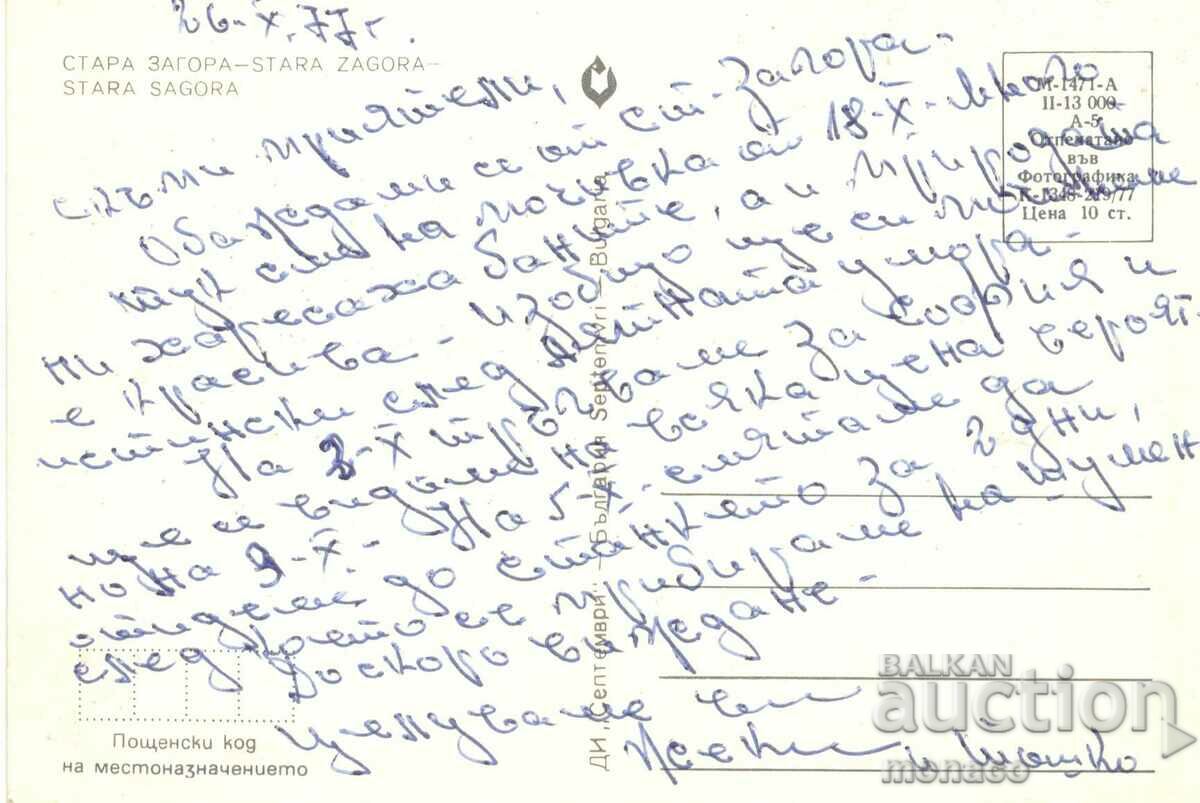 26-X.77г.
СТАРА ЗАГОРА—STARA ZAGORA—
STARA SAGORA
М-1471-А
II-13 000
А-5
Отпечатано
във
Фотографика
К-1348-219/77
Цена 10 ст.
скъпи приятели,
Обаждаме се от Ст-Загора-
тук сме на почивка от 18-X- много
ни харесаха баните, а и природата
е красива - изобщо ще си починем
истински след лятната умора-
На 2-X тръгваме за София и
ще се видим на всяка цена вероят-
но на 3-X- На 5-X- смятаме да
отидем до за 2 дни,
след което се прибираме на Шумен
До скоро виждане-
целуваме ви
и Мошко
ДИ „Септември“ — България Septemvri — Bulgaria
Пощенски код
на местоназначението
BALKAN
auction
monaco